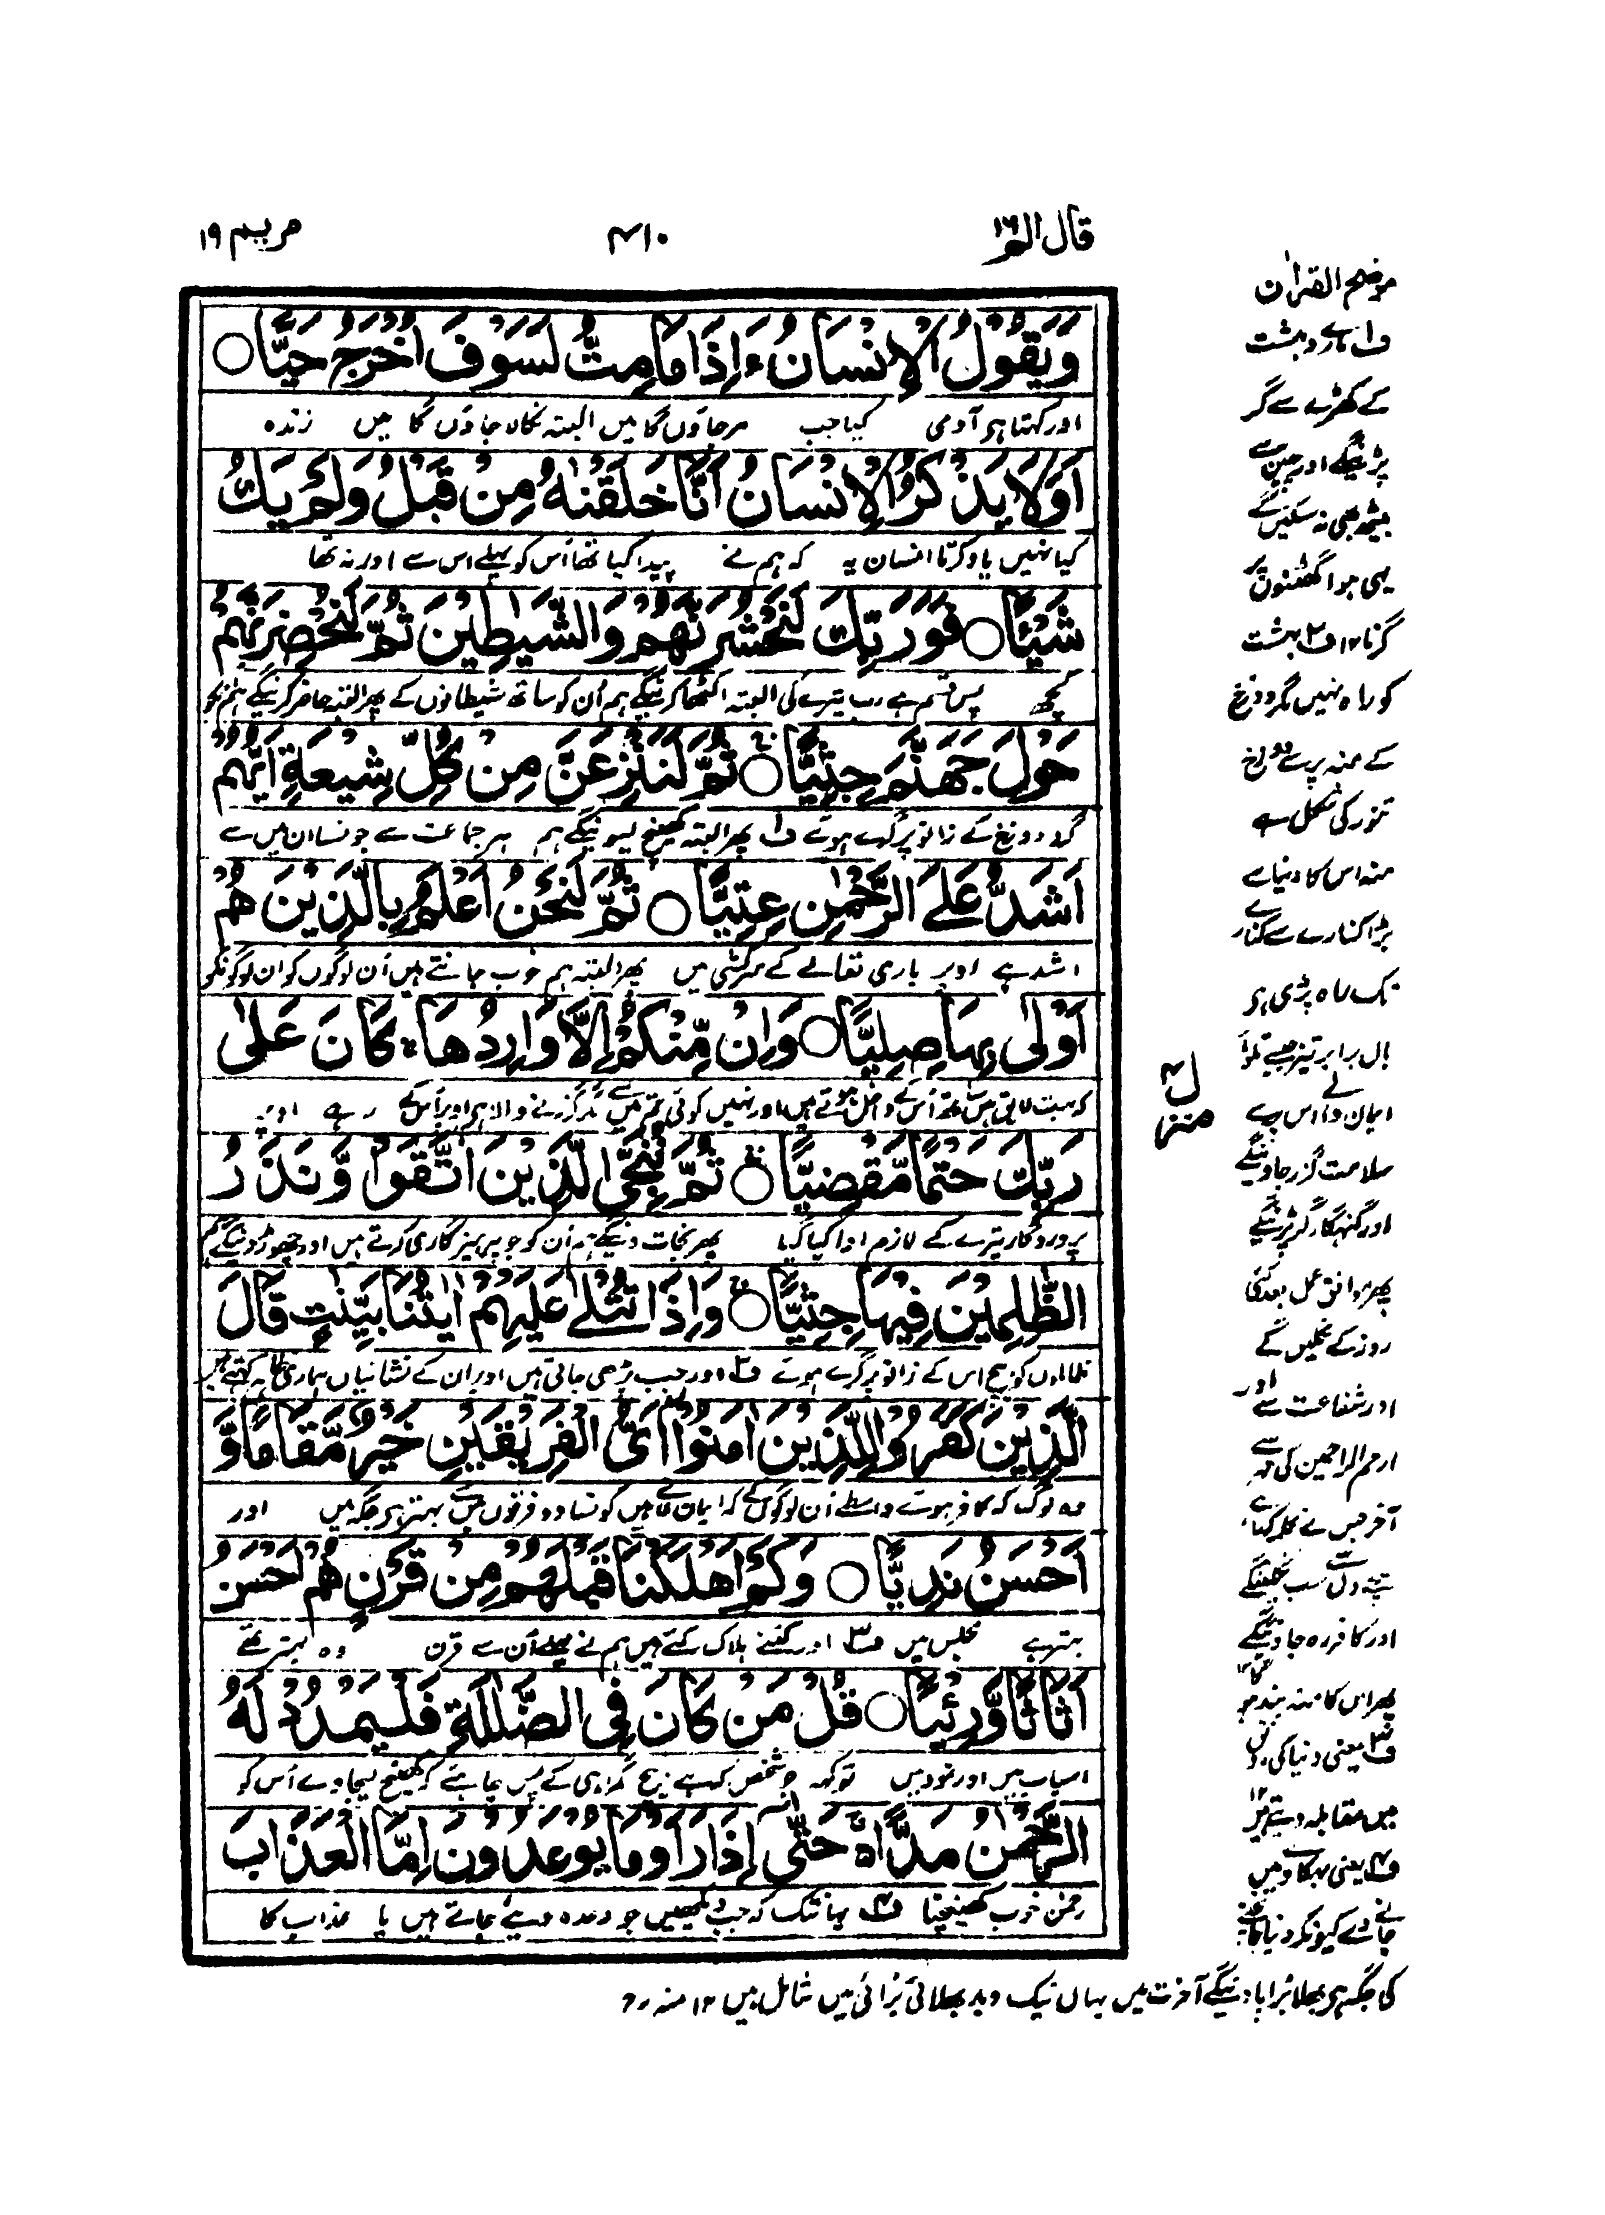 قال الم ١٦
٤١٠
مريم ١٩
وَيَقُولُ الْاِنْسَانُ ءَاِذَا مَامِتُّ لَسَوْفَ اُخْرَجُ حَيًّا ○
اور کہتا ہی آدمی کیا جب مرجاؤں گا میں البتہ نکالا جاؤں گا میں زندہ
اَوَلَا يَذْكُرُ الْاِنْسَانُ اَنَّا خَلَقْنٰهُ مِنْ قَبْلُ وَلَمْ يَكُ
کیا نہیں یاد کرتا انسان یہ کہ ہم نے پیدا کیا تھا اُس کو پہلے اس سے اور نہ تھا
شَيْئًا ○ فَوَرَبِّكَ لَنَحْشُرَنَّهُمْ وَالشَّيٰطِيْنَ ثُمَّ لَنُحْضِرَنَّهُمْ
کچھ پس قسم ہے رب تیرے کی البتہ اکٹھا کرینگے ہم اُن کو ساتھ شیطانوں کے پھر البتہ حاضر کرینگے ہم اُنکو
حَوْلَ جَهَنَّمَ جِثِيًّا ○ ثُمَّ لَنَنْزِعَنَّ مِنْ كُلِّ شِيْعَةٍ اَيُّهُمْ
گرد دوزخ کے زانو پر گرے ہوئے ف۱ پھر البتہ کھینچ لیوینگے ہم ہر جماعت سے جونسا ان میں سے
اَشَدُّ عَلَى الرَّحْمٰنِ عِتِيًّا ○ ثُمَّ لَنَحْنُ اَعْلَمُ بِالَّذِيْنَ هُمْ
اشد ہے اوپر باری تعالے کے سرکشی میں پھر البتہ ہم خوب جانتے ہیں اُن لوگوں کو ان لوگونکو
اَوْلٰى بِهَا صِلِيًّا ○ وَاِنْ مِّنْكُمْ اِلَّا وَارِدُهَا ۚ كَانَ عَلٰى
کہ بہت لائق ہیں ساتھ اُس کے داخل ہونے میں اور نہیں کوئی تم میں سے مگر گزرنے والا ہی اوپر اُس کے ہے اوپر
رَبِّكَ حَتْمًا مَّقْضِيًّا ○ ثُمَّ نُنَجِّى الَّذِيْنَ اتَّقَوْا وَّنَذَرُ
پروردگار تیرے کے لازم ادا کیا گیا پھر نجات دینگے ہم اُن کو جو پرہیزگاری کرتے ہیں اور چھوڑ دینگے ہم
الظّٰلِمِيْنَ فِيْهَا جِثِيًّا ○ وَاِذَا تُتْلٰى عَلَيْهِمْ اٰيٰتُنَا بَيِّنٰتٍ قَالَ
ظالموں کو بیچ اس کے زانو پر گرے ہوئے ف۲ اور جب پڑھی جاتی ہیں اوپر ان کے نشانیاں ہماری ظاہر کہتے ہیں
الَّذِيْنَ كَفَرُوْا لِلَّذِيْنَ اٰمَنُوْا اَىُّ الْفَرِيْقَيْنِ خَيْرٌ مَّقَامًا وَّ
وہ لوگ کہ کافر ہوئے واسطے اُن لوگوں کے کہ ایمان لائے ہیں کونسا دو فرقوں میں سے بہتر ہی جگہ میں اور
اَحْسَنُ نَدِيًّا ○ وَكَمْ اَهْلَكْنَا قَبْلَهُمْ مِّنْ قَرْنٍ هُمْ اَحْسَنُ
بہتر ہے مجلس میں ف۳ اور کتنے ہلاک کئے ہیں ہم نے پہلے اُن سے قرن وہ بہتر تھے
اَثَاثًا وَّرِءْيًا ○ قُلْ مَنْ كَانَ فِى الضَّلٰلَةِ فَلْيَمْدُدْ لَهُ
اسباب میں اور نمود میں تو کہہ جو شخص کہ ہے بیچ گمراہی کے پس چاہئے کہ کھینچ لیجاوے اُس کو
الرَّحْمٰنُ مَدًّا ۚ حَتّٰى اِذَا رَاَوْا مَا يُوْعَدُوْنَ اِمَّا الْعَذَابَ
رحمٰن خوب کھینچنا ف۴ یہانتک کہ جب دیکھیں جو وعدہ دیئے جاتے ہیں یا عذاب کا
موضح القرآن
کے کھڑے سے گر
پڑینگے اور چین سے
بیٹھ بھی نہ سکیں گے
یہی ہوا گھٹنوں پر
گرنا ۱۲ ف۲ بہشت
کو راہ نہیں مگر دوزخ
کے منہ پر سے دوزخ
تنور کی شکل ہے
منہ اس کا دنیا سے
بڑا کنارے سے کنارے
تک راہ پڑی ہی
بال برابر تیز جیسے تلوار
ایمان والے اس پر سے
سلامت گزر جاوینگے
اور گنہگار گر پڑینگے
پھر موافق عمل بعد کئی
روز کے نکلیں گے
اور شفاعت سے اور
ارحم الراحمین کی مہر سے
آخر جس نے کلمہ کہا ہے
سچے دل سے سب نکلینگے
اور کافر رہ جاوینگے
پھر اس کا منہ بند ہوگا ۱۲
ف۳ یعنی دنیا کی رونق
میں مقابلہ دیتے ہیں ۱۲
ف۴ یعنی بہکاوے میں
جانے دے کیونکہ دنیا جانچنے
کی جگہ ہی بھلا بُرا پاوینگے آخرت میں یہاں نیک و بد بھلائی بُرائی میں شامل ہیں ۱۲ منہ رح
منزل ٤